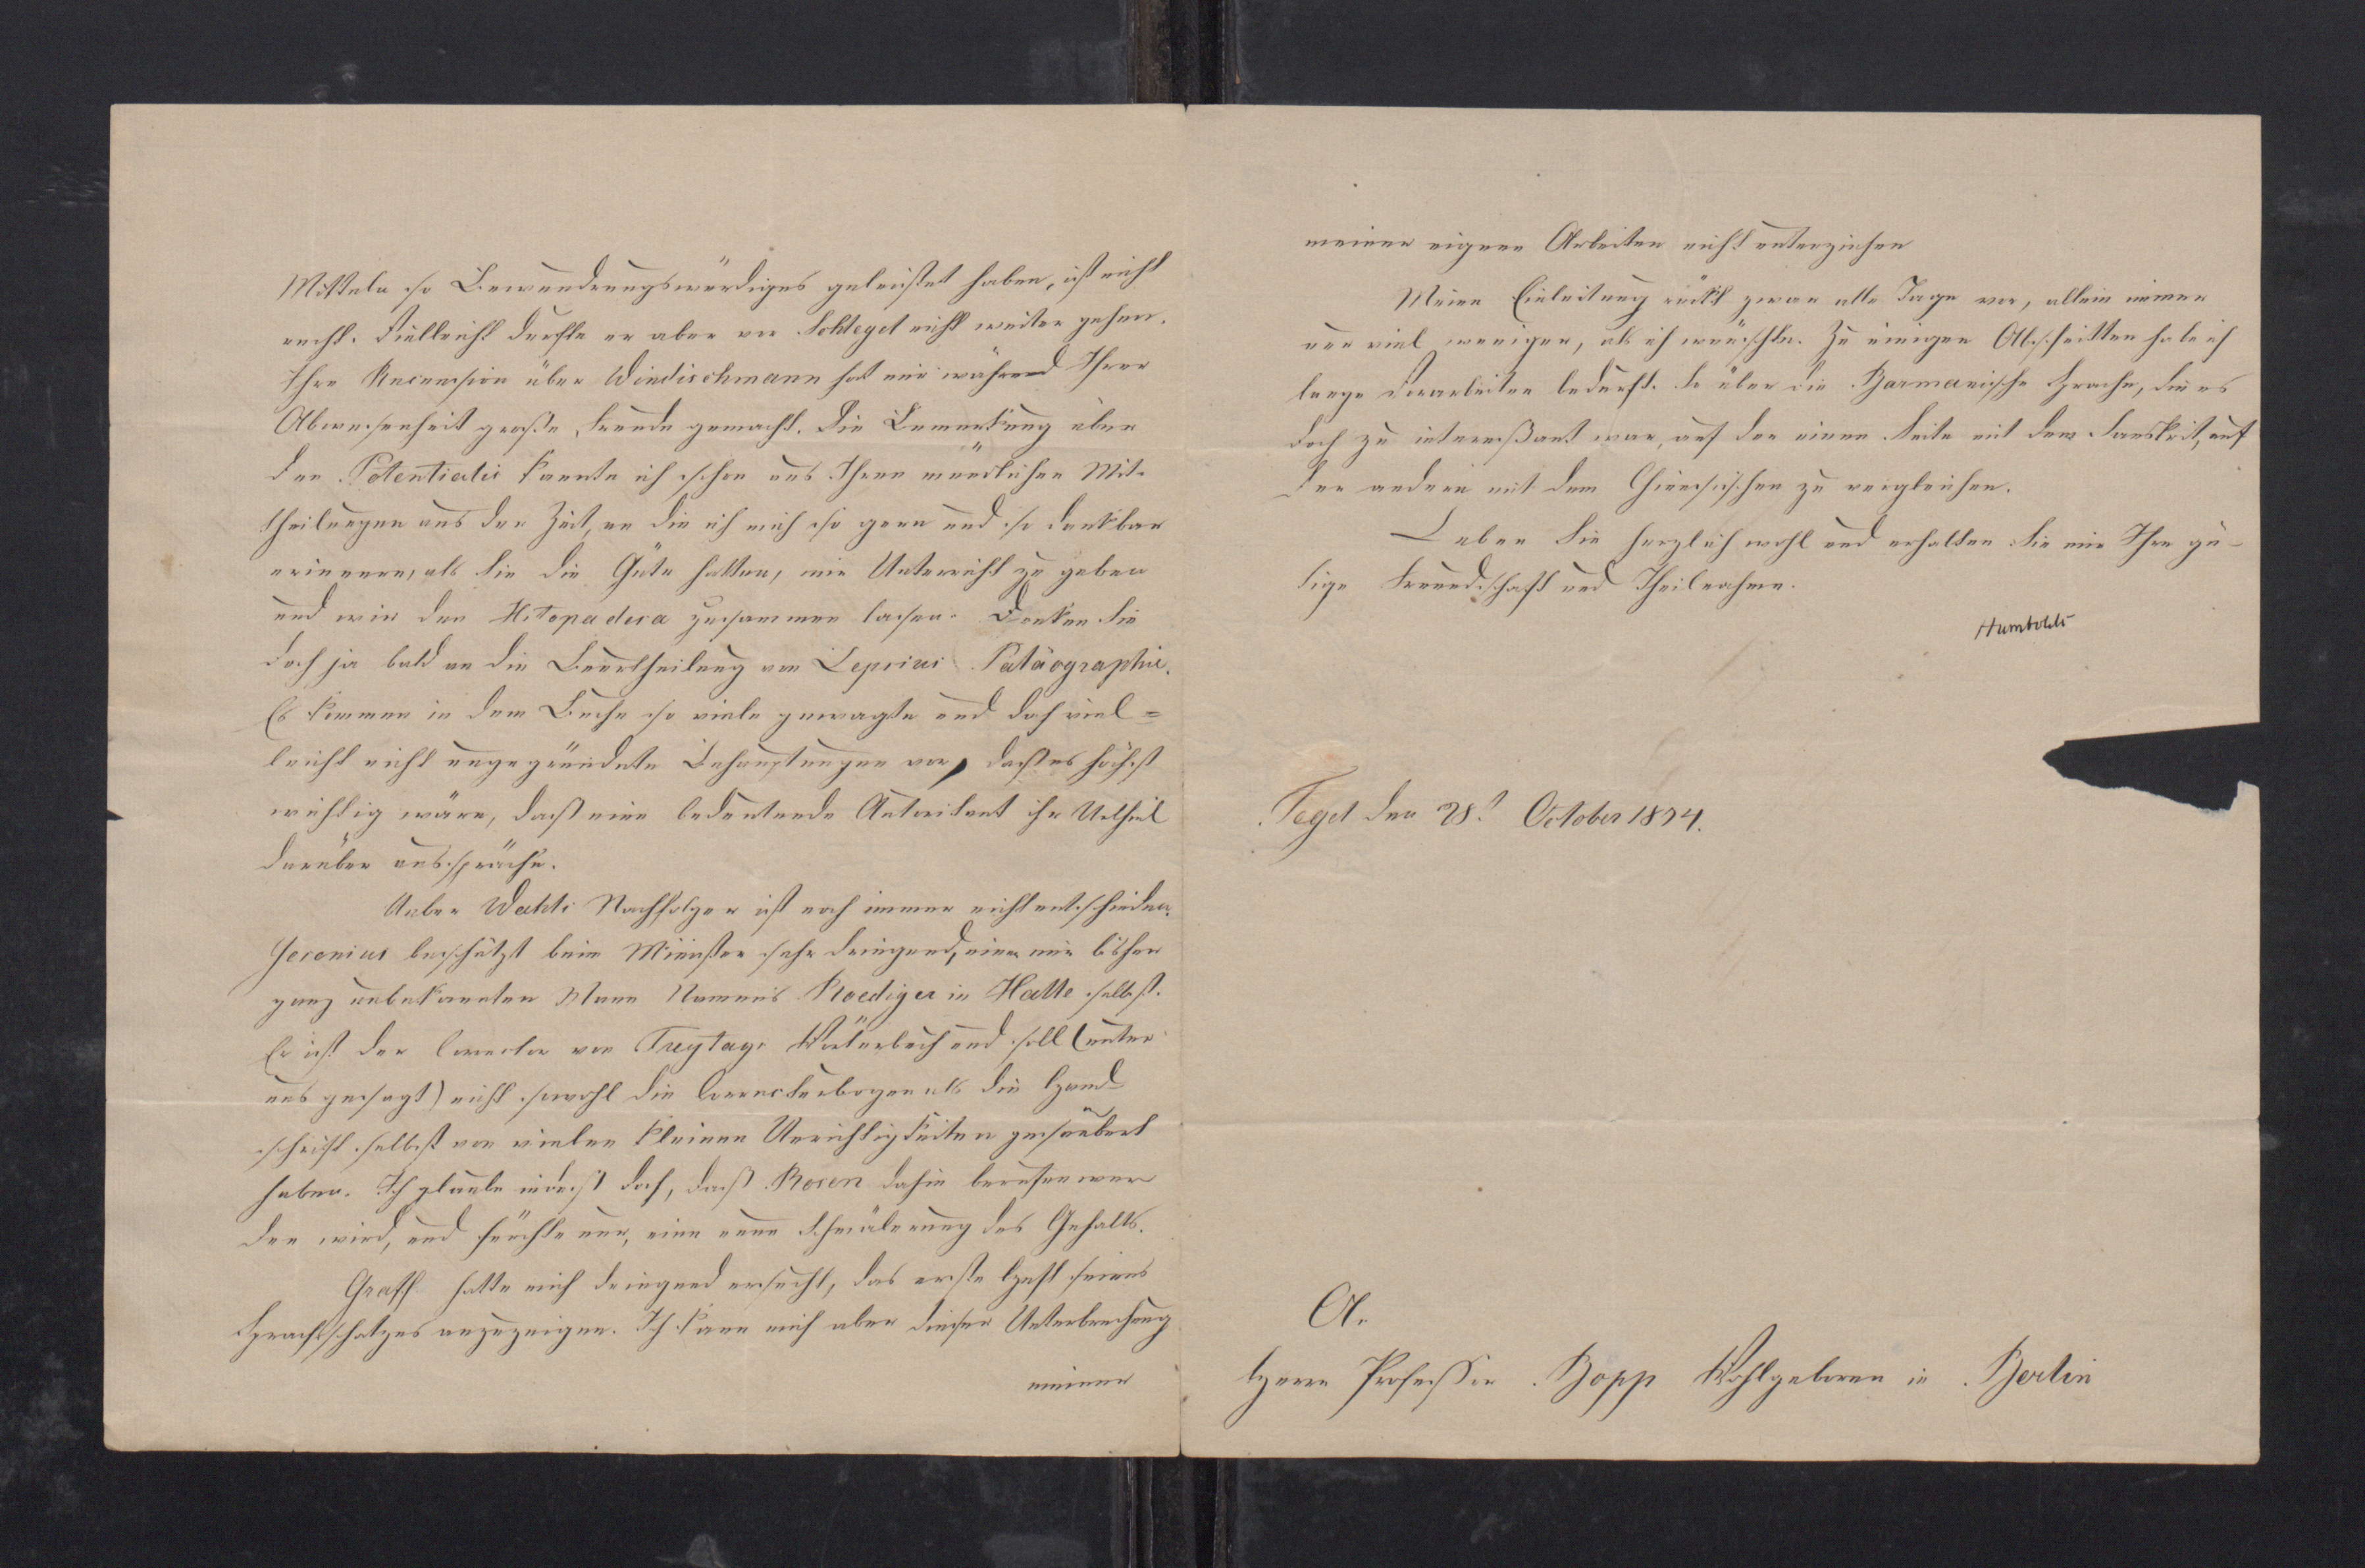 Mitteln so Bewundrungswürdiges geleistet haben, ist nicht
recht. Vielleicht durfte er aber vor Schlegel nicht weiter gehen.
Ihre Recension über Windischmann hat mir während Ihrer
Abwesenheit große Freude gemacht. Die Bemerkung über
den Potentialis kannte ich schon aus Ihren mündlichen Mit-
theilungen aus der Zeit, an die ich mich so gern und so dankbar
erinnere, als Sie die Güte hatten, mir Unterricht zu geben
und wir den Hitopadesa zusammen lasen. Denken Sie
doch ja bald an die Beurtheilung von Lepsius Paläographie.
Es kommen in dem Buche so viele gewagte und doch viel=
leicht nicht ungegründete Behauptungen vor, daß es höchst
wichtig wäre, daß eine bedeutende Autoritaet ihr Urtheil
darüber ausspräche.
Ueber Wahls Nachfolger ist noch immer nicht entschieden.
Gesenius beschützt beim Minister sehr dringend, einen mir bisher
ganz unbekannten Mann Namens Roediger in Halle selbst.
Er ist der Corrector von Freytags Wörterbuch und soll (unter
uns gesagt) nicht sowohl die Correcturbogen als die Hand-
schrift selbst von vielen kleinen Unrichtigkeiten gesäubert
haben. Ich glaube indeß doch, daß Rosen dahin berufen wer
den wird, und fürchte nur, eine neue Schmälerung des Gehalts.
Graff hatte mich dringend ersucht, das erste Heft seines
Sprachschatzes anzuzeigen. Ich kann mich aber dieser Unterbrechung
meiner
meiner eignen Arbeiten nicht unterziehen
Meine Einleitung rückt zwar alle Tage vor, allein immer
nur viel weniger, als ich wünschte. Zu einigen Abschnitten habe ich
lange Vorarbeiten bedurft. So über die Barmanische Sprache, die es
doch zu interessant war, auf der einen Seite mit dem Sanskrit, auf
der andern mit dem Chinesischen zu vergleichen.
Leben Sie herzlich wohl und erhalten Sie mir Ihre gü-
tige Freundschaft und Theilnahme.
Humboldt
Tegel den 28.t October 1834.
A.
Herrn Professor Bopp Wohlgeboren in Berlin